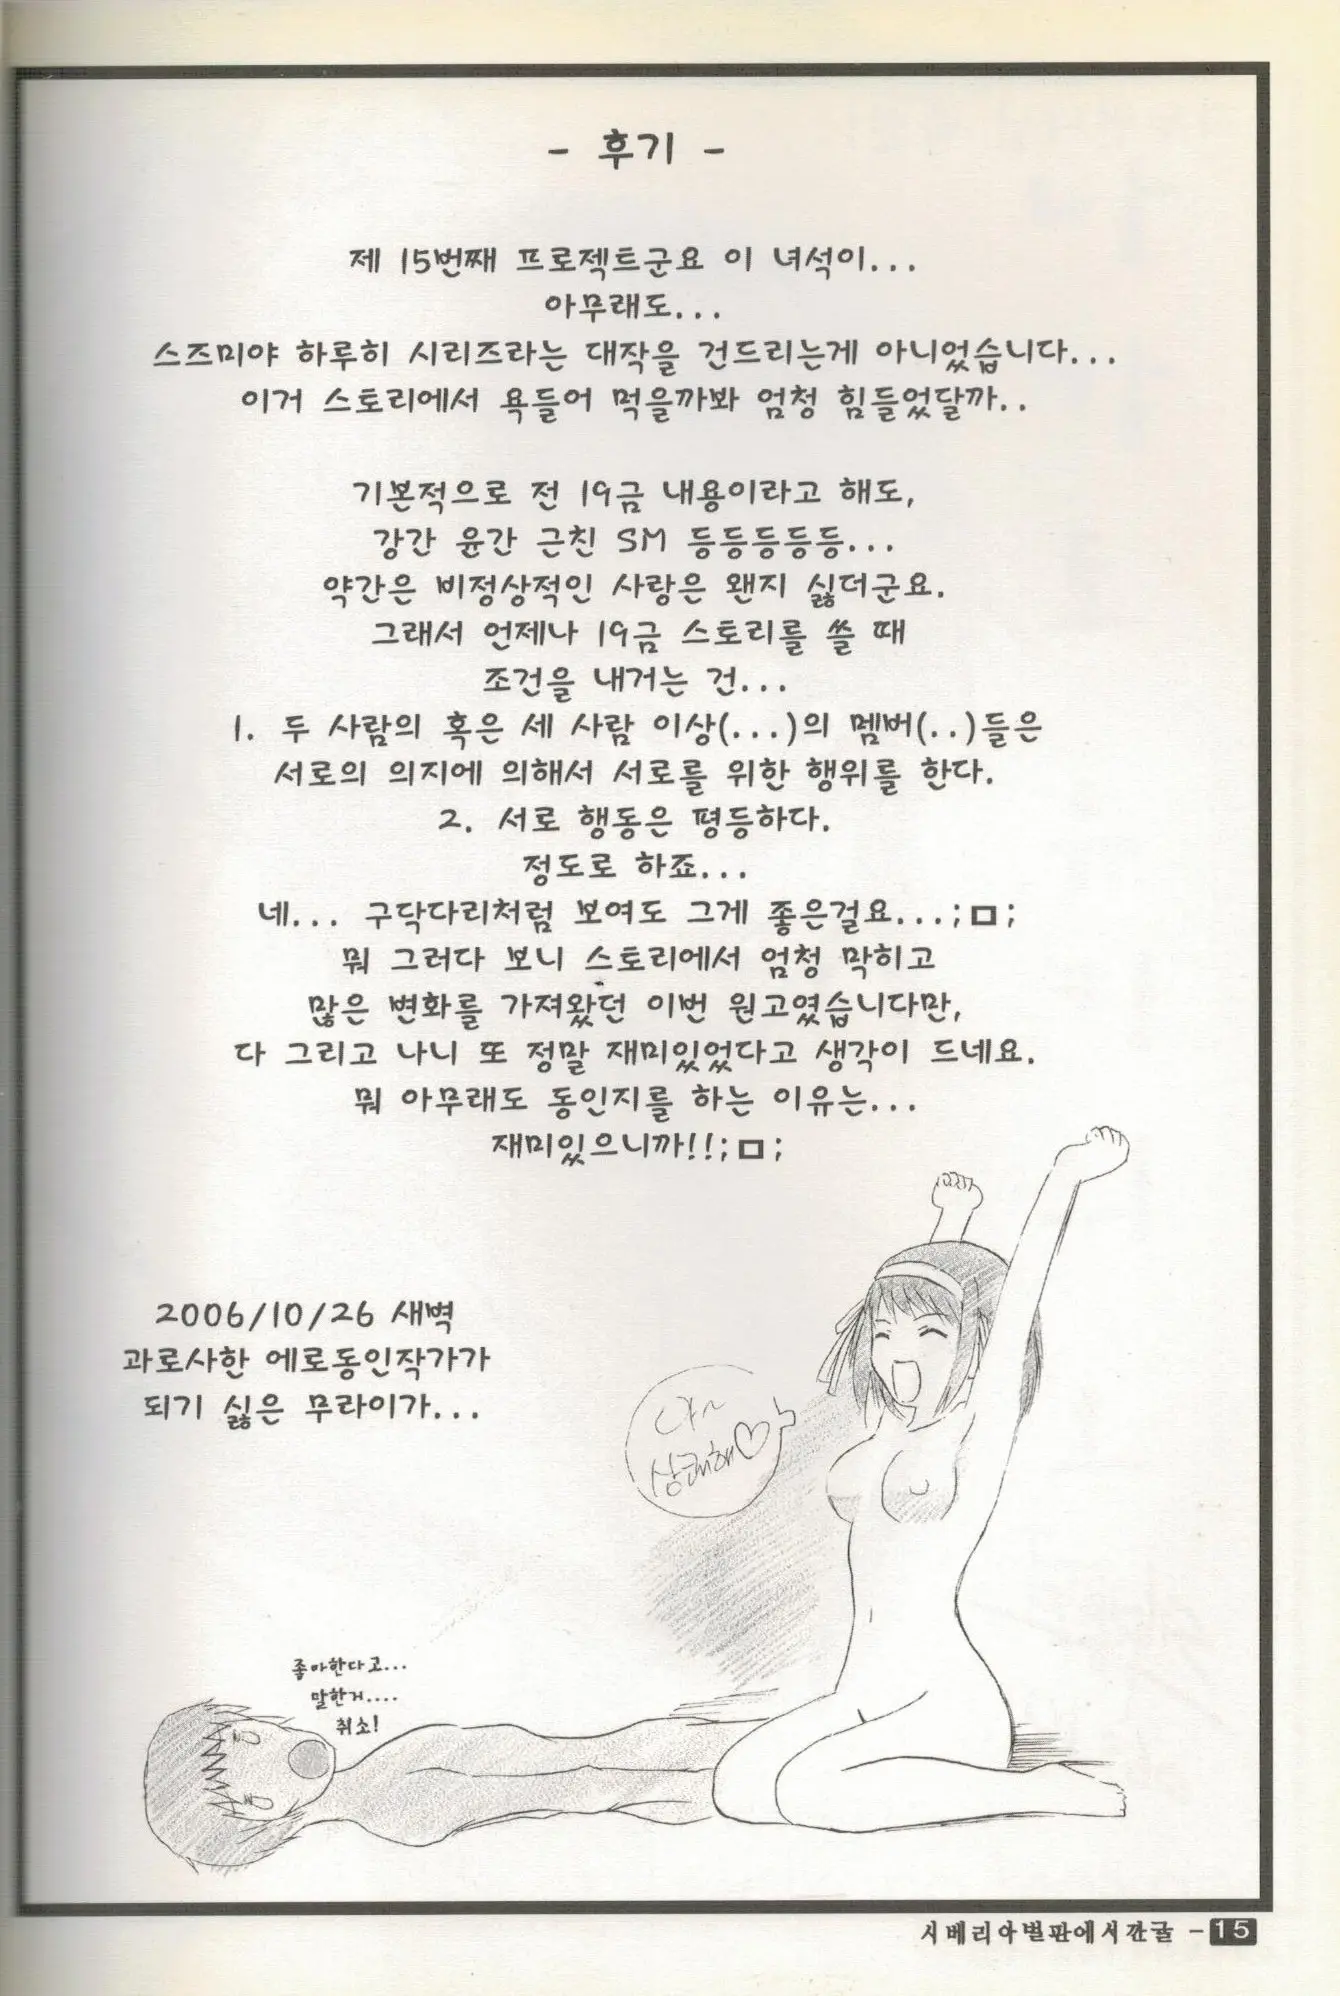 - 후기 -
제 15번째 프로젝트군요 이 녀석이...
아무래도...
스즈미야 하루히 시리즈라는 대작을 건드리는게 아니었습니다...
이거 스토리에서 욕들어 먹을까봐 엄청 힘들었달까..
기본적으로 전 19금 내용이라고 해도,
강간 윤간 근친 SM 등등등등등...
약간은 비정상적인 사랑은 왠지 싫더군요.
그래서 언제나 19금 스토리를 쓸 때
조건을 내거는 건...
1. 두 사람의 혹은 세 사람 이상(...)의 멤버(..)들은
서로의 의지에 의해서 서로를 위한 행위를 한다.
2. 서로 행동은 평등하다.
정도로 하죠...
네... 구닥다리처럼 보여도 그게 좋은걸요...;ㅁ;
뭐 그러다 보니 스토리에서 엄청 막히고
많은 변화를 가져왔던 이번 원고였습니다만,
다 그리고 나니 또 정말 재미있었다고 생각이 드네요.
뭐 아무래도 동인지를 하는 이유는...
재미있으니까!!;ㅁ;
2006/10/26 새벽
과로사한 에로동인작가가
되기 싫은 무라이가...
아~
상쾌해♡
좋아한다고...
말한거....
취소!
시베리아벌판에서깐귤 - 15